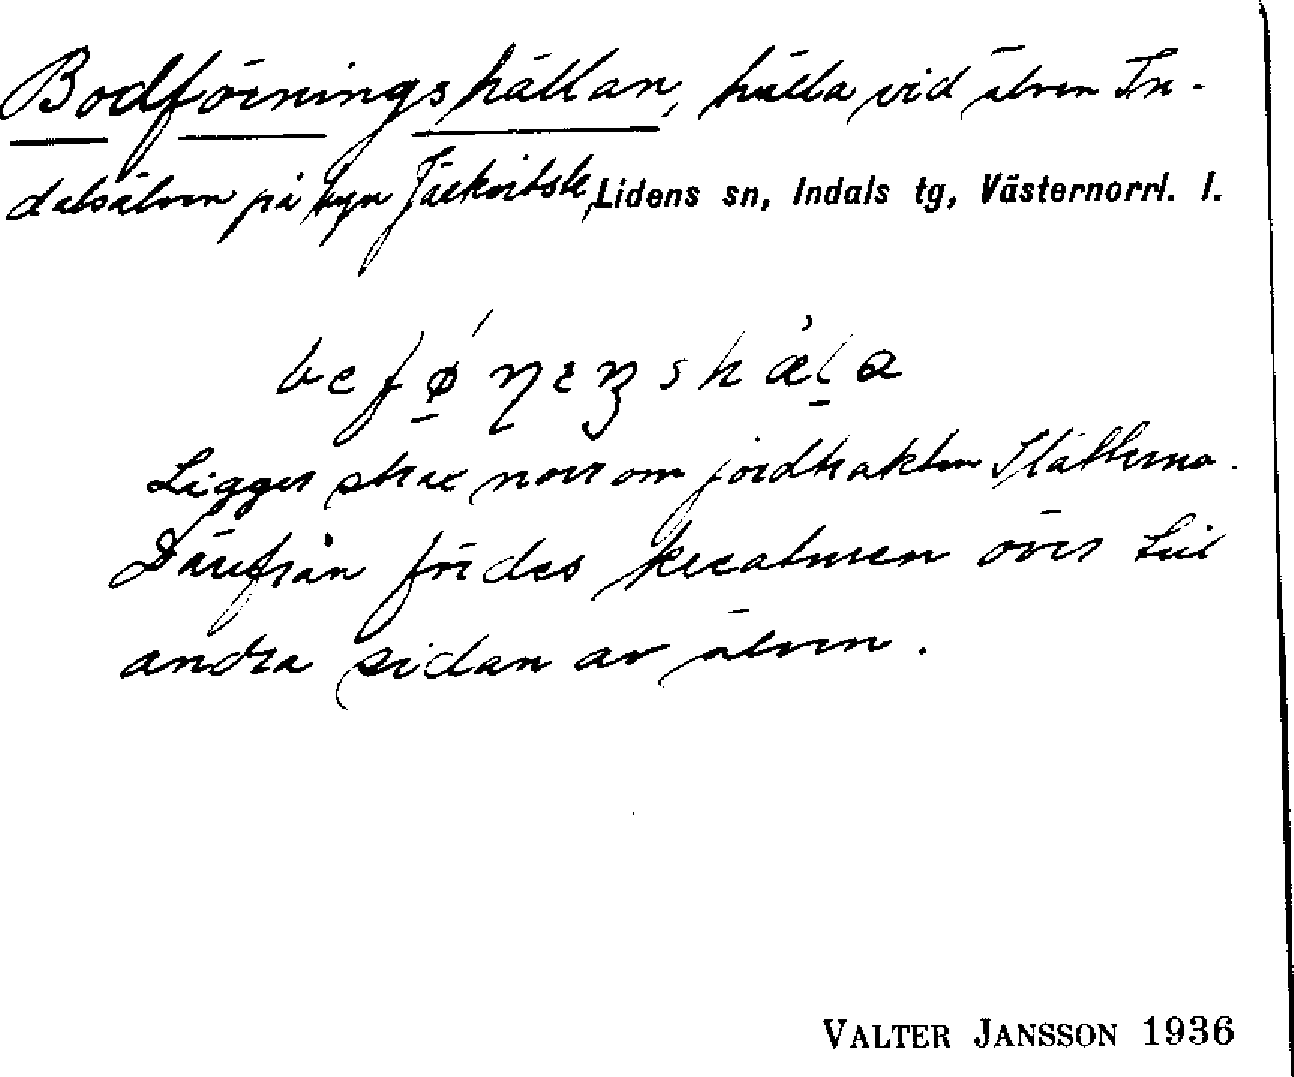 Bodföringshällan, hälla vid älven In-
dalsälven på byn Järkvitsle, Lidens sn, Indals tg, Västernorrl. l.
Ligger strax norr om jordtrakten Ställerna.
Därifrån fördes kreaturen över till
andra sidan av älven.
VALTER JANSSON 1936